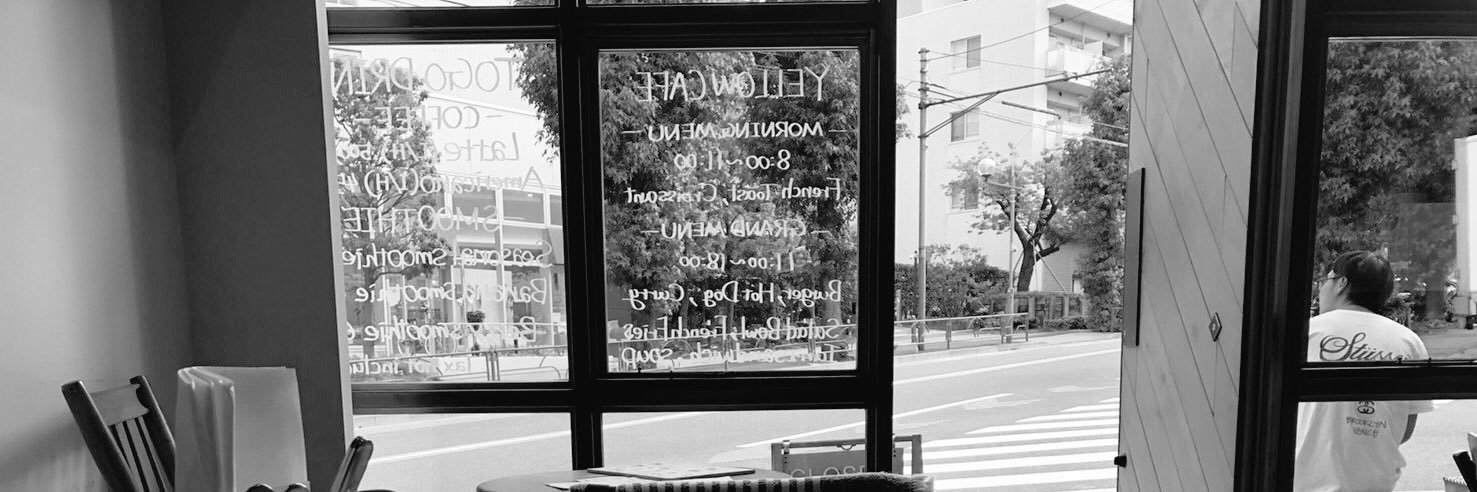 TOGO DRIN
-COFFEE-
Latte
Americano (I/H)
-SMOOTHIE
Seasonal Smoothie
Banana Smoothie
Smoothie
Tax not inclu
YELLOW CAFE
-MORNING MENU-
8:00~11:00
French Toast, Croissant
-GRAND MENU-
11:00~18:00
Burger, Hot Dog, Curry
Salad Bowl, French Fries
sandwich, soup
Stüss
BROOKLYN
VENICE